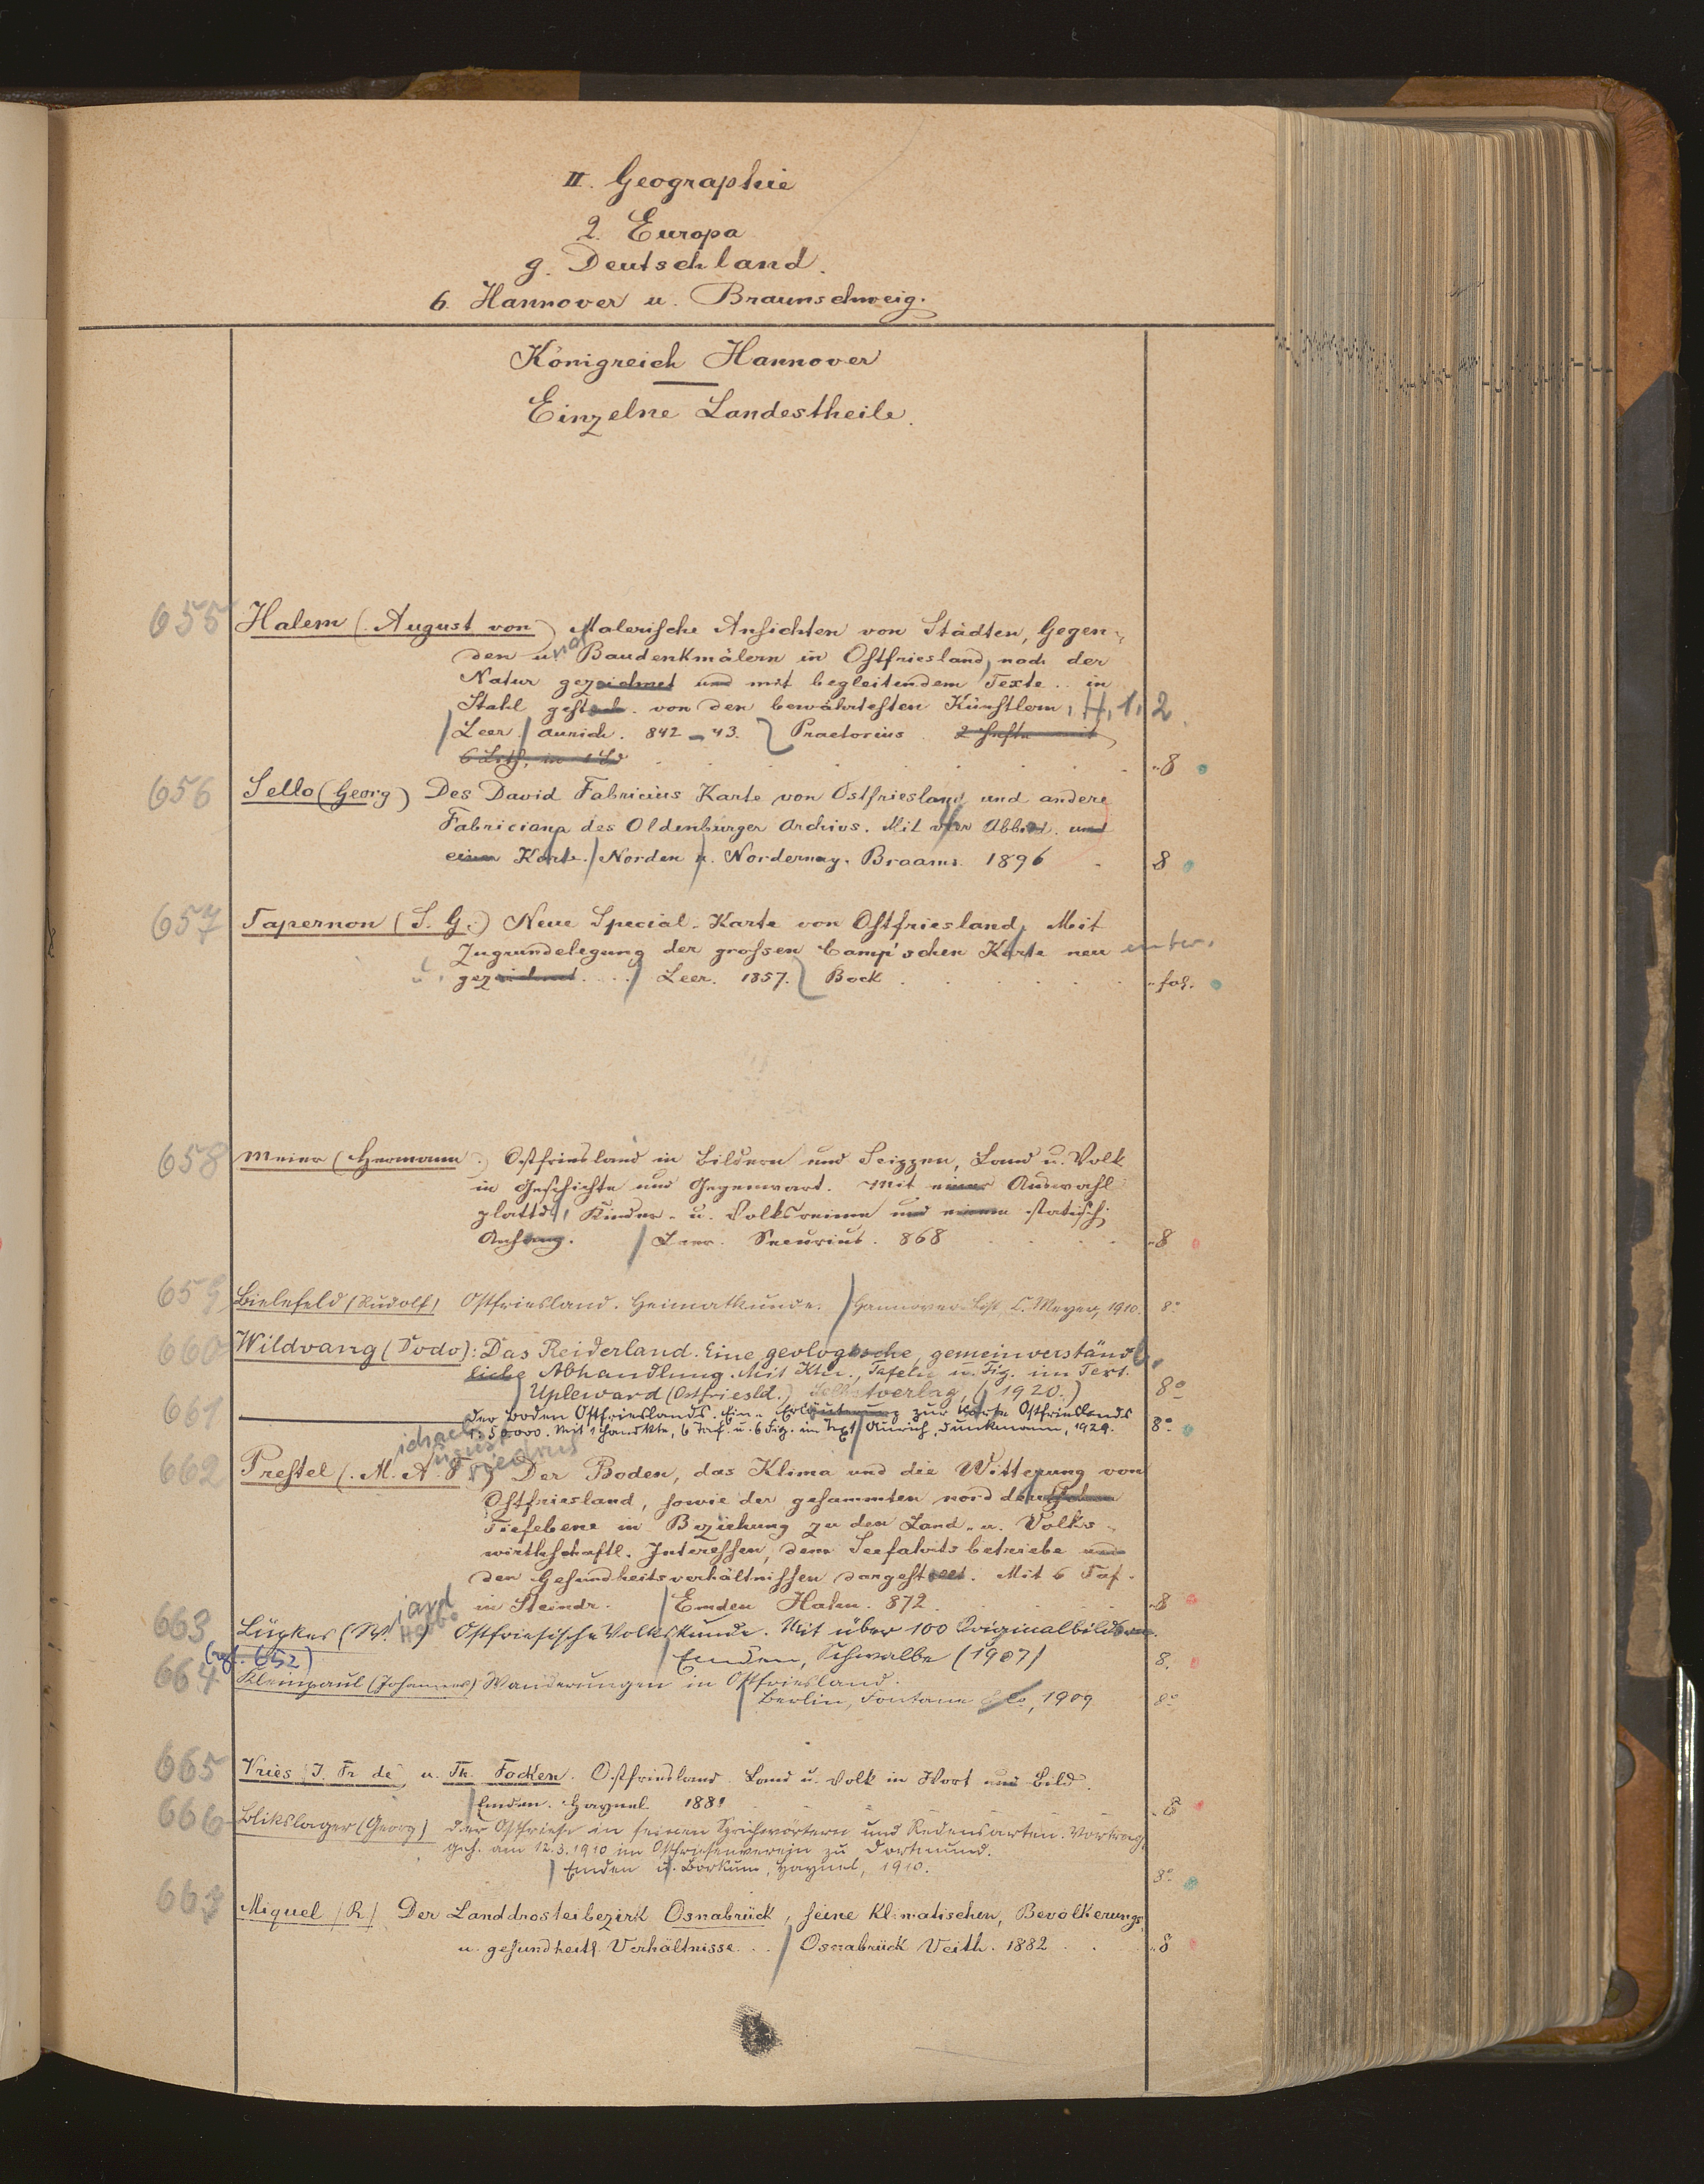 II. Geographie
2. Europa
g. Deutschland.
6. Hannover u. Braunschweig.
Königreich Hannover
Einzelne Landestheile.
655 Halem (August von) Malerische Ansichten von Städten, Gegen-
den u. Baudenkmälern in Ostfriesland, nach der
Natur gezeichnet und mit begleitendem Texte .. in
Stahl gestoch. von den bewährtesten Künstlern, H, 1, 2.
Leer. Aurich. 842-43. Praetorius. 2 Hefte mit
8
656 Sello (Georg) Des David Fabricius Karte von Ostfriesland und andere
Fabriciana des Oldenburger Archivs. Mit vier Abbild. und
einer Karte. Norden u. Norderney. Braams. 1896 8
657 Tapernon (S. G.) Neue Special-Karte von Ostfriesland, Mit
Zugrundelegung der grossen Camp'schen Karte neu
gezeichnet ... Leer. 1857. Bock fol.
658 Meier (Hermann) Ostfriesland in Bildern und Scizzen, Land u. Volk
in Geschichte und Gegenwart. Mit einer Auswahl
plattd. Kinder- u. Volksreime und einem statisch.
Anhang. Leer. Securius. 868 8
659 Bielefeld (Rudolf) Ostfriesland. Heimatkunde. Hannover-List, C. Meyer, 1910. 8°
660 Wildvang (Dodo): Das Reiderland. Eine geologische, gemeinverständ-
liche Abhandlung. Mit Ktn., Tafeln u. Fig. im Text.
Upleward (Ostfriesld.) Selbstverlag, (1920.) 8°
661 Der Boden Ostfrieslands. Eine Erläuterung zur Karte Ostfrieslands
1:50000. Mit 1 Handkte, 6 Taf. u. 6 Fig. im Text. Aurich, Dunkmann, 1929. 8°
ichael ugust riedrus
662 Prestel (M. A. F.) Der Boden, das Klima und die Witterung von
Ostfriesland, sowie der gesammten norddeutschen
Tiefebene in Beziehung zu den Land- u. Volks-
wirthschaftl. Interessen, dem Seefahrtsbetriebe und
den Gesundheitsverhältnissen dargestellt. Mit 6 Taf.
in Steindr. Emden Hahn. 872 8
663 Lüpkes (W.) Ostfriesische Volkskunde. Mit über 100 Originalbildern.
(vgl. 652) Emden, Schwalbe (1907) 8.
664 Kleinpaul (Johannes) Wanderungen in Ostfriesland.
Berlin, Fontane & Co, 1909 8°
665 Vries (J. Fr. de) u. Th. Focken. Ostfriesland. Land u. Volk in Wort und Bild.
Emden. Haynel. 1881 8
666 Blikslager (Georg) Der Ostfriese in seinen Sprichwörtern und Redensarten. Vortrag,
geh. am 12.3.1910 im Ostfriesenverein zu Dortmund.
Emden u. Borkum, Haynel, 1910. 8°
667 Miquel (R) Der Landdrosteibezirk Osnabrück, seine klimatischen, Bevölkerungs-
u. gesundheitl. Verhältnisse ... Osnabrück Veith. 1882 8